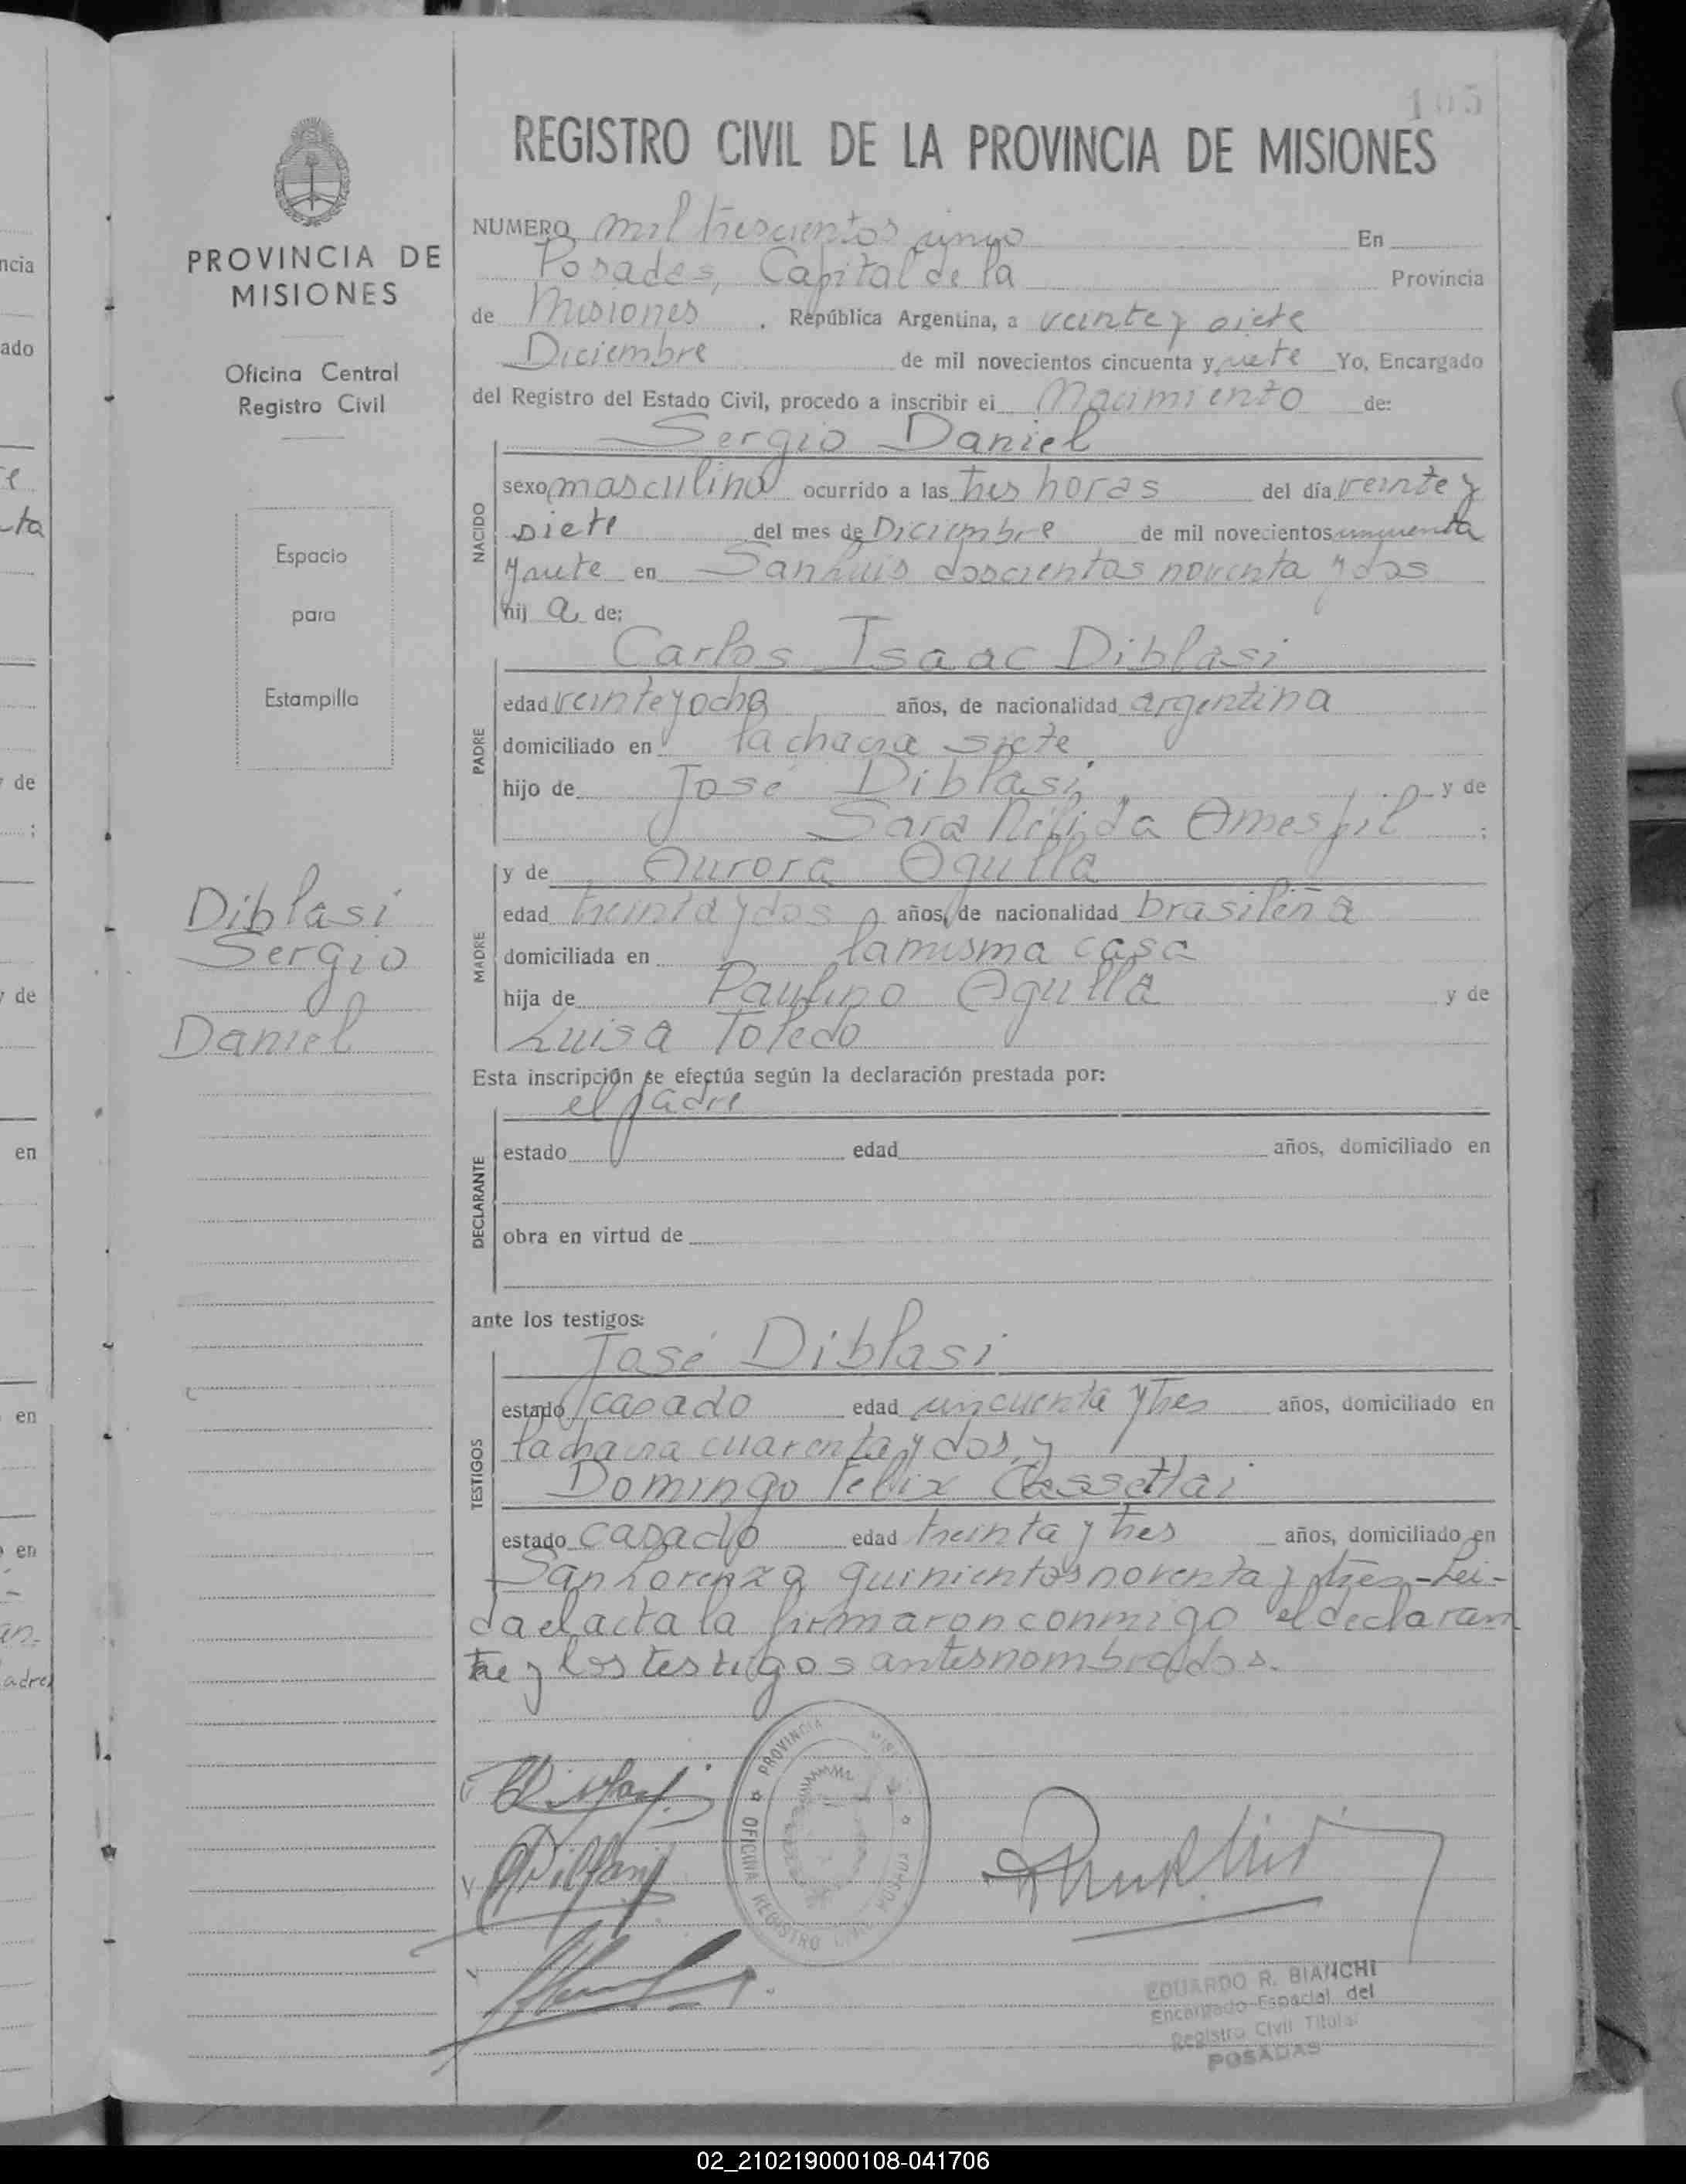 105
REGISTRO CIVIL DE LA PROVINCIA DE MISIONES
PROVINCIA DE
MISIONES
Oficina Central
Registro Civil
Espacio
para
Estampilla
Diblasi
Sergio
Daniel
NUMERO mil trescientos cinco En
Posadas, Capital de la Provincia
de Misiones . República Argentina, a veinte y siete
Diciembre de mil novecientos cincuenta y siete Yo, Encargado
del Registro del Estado Civil, procedo a inscribir el Nacimiento de:
Sergio Daniel
NACIDO
sexo masculino ocurrido a las tres horas del día veinte y
siete del mes de Diciembre de mil novecientos cincuenta
y siete en San Luis doscientos noventa y dos
hij a de:
Carlos Isaac Diblasi
PADRE
edad veinte y ocho años, de nacionalidad argentina
domiciliado en la chacra siete
hijo de José Diblasi y de
Sara Nélida Amespil :
MADRE
y de Aurora Agulla
edad treinta y dos años, de nacionalidad brasileña
domiciliada en la misma casa
hija de Paulino Agulla y de
Luisa Toledo
Esta inscripción se efectúa según la declaración prestada por:
el padre
DECLARANTE
estado edad años, domiciliado en
obra en virtud de
ante los testigos:
José Diblasi
TESTIGOS
estado casado edad cincuenta y tres años, domiciliado en
la chacra cuarenta y dos, y
Domingo Felix
estado casado edad treinta y tres años, domiciliado en
San Lorenzo quinientos noventa y tres - Lei-
da el acta la firmaron conmigo el declaran
te y los testigos antes nombrados.
PROVINCIA MISIONES
OFICINA REGISTRO CIVIL POSADAS
EDUARDO R. BIANCHI
Encargado Especial del
Registro Civil Titular
POSADAS
02_210219000108-041706